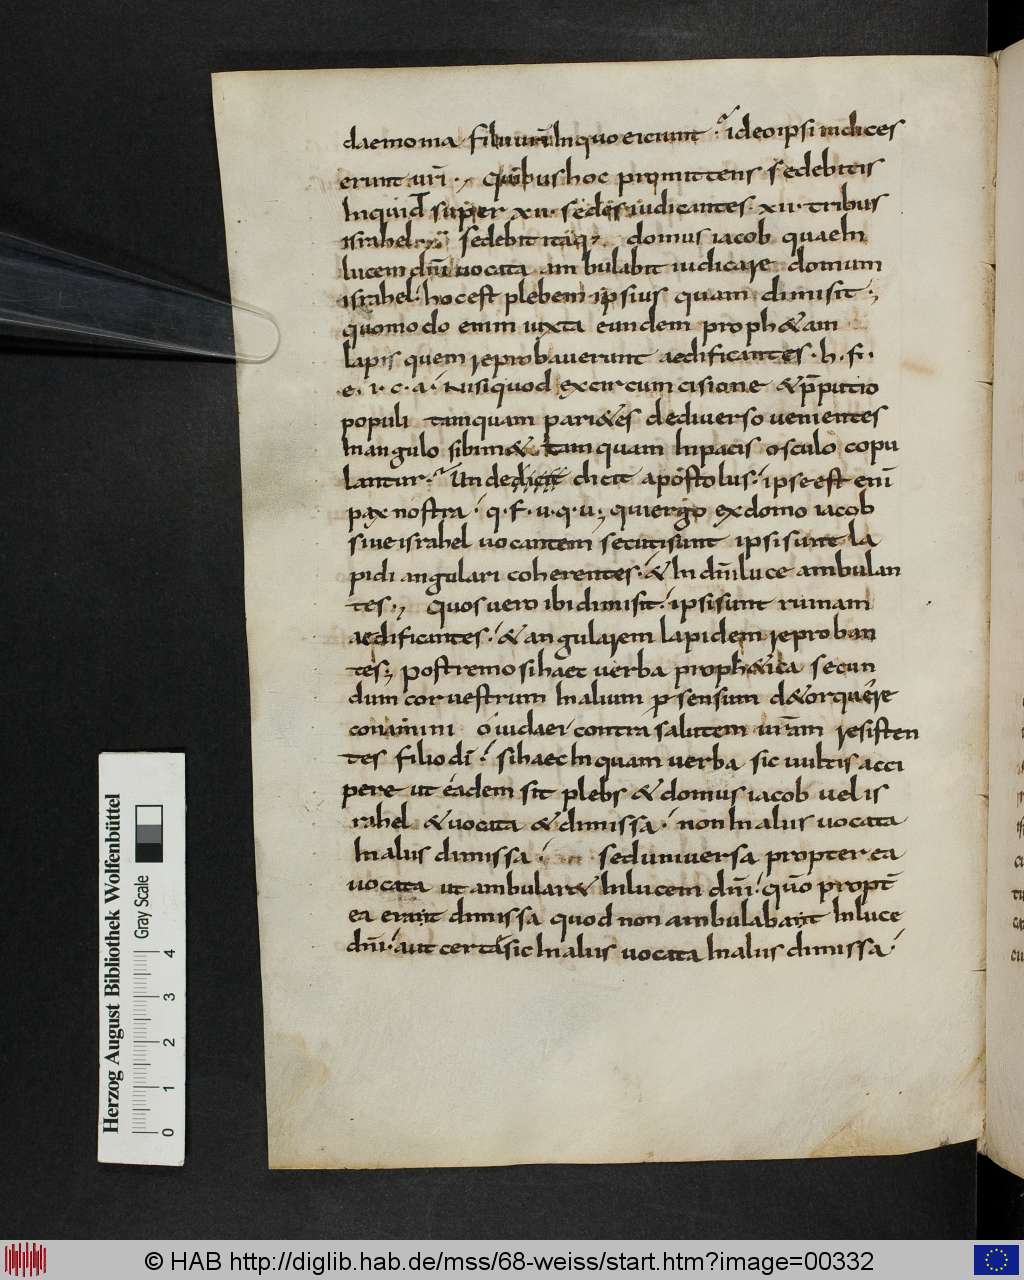 daemonia filii ur̄i In quo eiciunt · ideo ipsi iudices
erunt ur̄i · Quibus hoc promittens sedebitis
Inquid super xii · sedes iudicantes · xii · tribus
israhel sedebit itaq; domus iacob quae In
lucem dn̄i uocata ambulabit iudicare domum
israhel · hoc est plebem ipsius quam dimisit ·;
quomodo enim iuxta eundem proph&am
lapis quem reprobauerunt aedificantes · h · f ·
e · i · c · a · Nisi quod ex circumcisione & p̄putio
populi tamquam pari&es de diuerso uenientes
In angulo sibim& tamquam In pacis osculo copu
lantur · Unde dicit apostolus · ipse est eni̅
pax nostra · q · f · u · q · u ·; qui ergo ex domo iacob
siue israhel uocantem secuti sunt ipsi sunt la
pidi angulari coherentes · & In dn̄i luce ambulan
tes ·; Quos uero ibi dimisit · ipsi sunt ruinam
aedificantes · & angularem lapidem reproban
tes ·; postremo si haec uerba proph&ica secun
dum cor uestrum In alium p sensum d&orquere
conamini o iudaei contra salutem ur̄am resisten
tes filio dī · si haec Inquam uerba sic uultis acci
pere ut eadem sit plebs & domus iacob uel is
rahel & uocata & dimissa · non In aliis uocata
In aliis dimissa · sed uniuersa propter ea
uocata ut ambular& In lucem dn̄i · quō propt̄
ea erant dimissa quod non ambulabant In luce
dn̄i · aut certe sic In aliis uocata In aliis dimissa ·
Herzog August Bibliothek Wolfenbüttel
Gray Scale
0 1 2 3 4
© HAB http://diglib.hab.de/mss/68-weiss/start.htm?image=00332